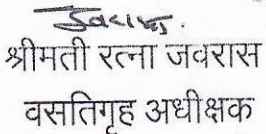 श्रीमती रत्ना जवरास
वसतिगृह अधीक्षक